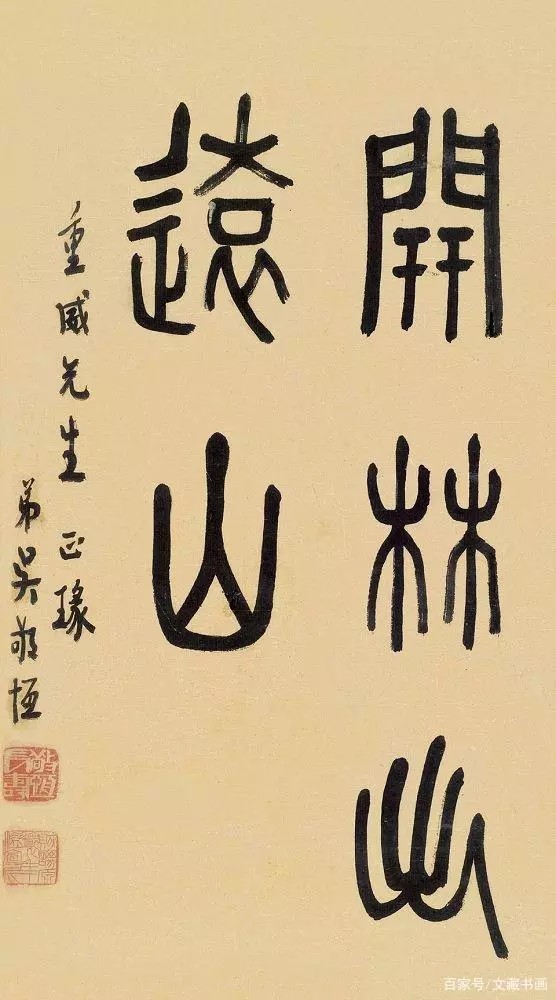 開林出
遠山
重威先生 正瑑
弟吳敬恆
百家号/文藏书画